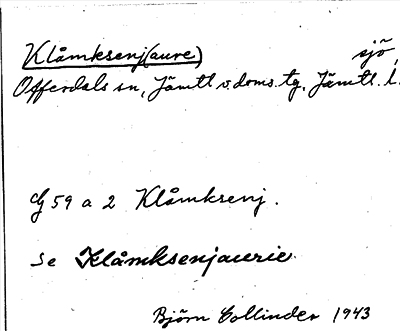 Klåmksenj(aure) sjö,
Offerdals sn, Jämtl v. doms. tg, Jämtl. l.
59 a 2 Klåmksenj.
Se Klåmksenjaurie
Björn Collinder 1943